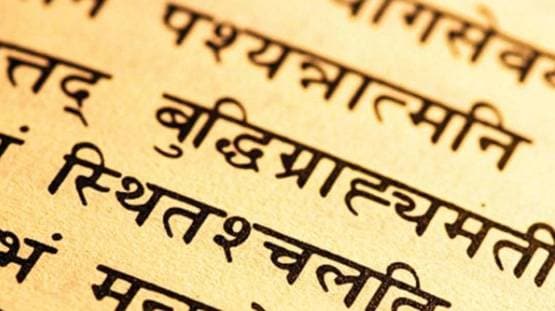 योगसेव
पश्यन्नात्मनि
त्तद् बुद्धिग्राह्यमती
स्थितश्चलति
भं